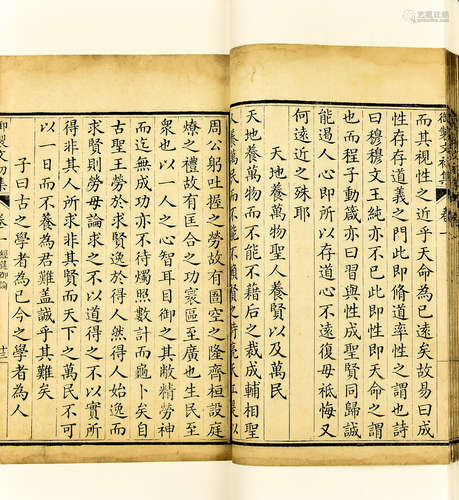 而其視性之近乎天命為已遠矣故易曰成
性存存道義之門此即脩道率性之謂也詩
曰穆穆文王純亦不已此即性即天命之謂
也而程子動箴亦曰習與性成聖賢同歸誠
能遏人心即所以存道心不遠復毋祗悔又
何遠近之殊耶
天地養萬物聖人養賢以及萬民
天地養萬物而不能不藉后之裁成輔相聖
人養萬民而不能不
周公躬吐握之勞故有圄空之隆齊桓設庭
燎之禮故有匡合之功寰區至廣也生民至
衆也以一人之心智耳目御之其敝精勞神
而迄無成功亦不待燭照數計而龜卜矣自
古聖王勞於求賢逸於得人然得人始逸而
求賢則勞毋論求之不以道得之不以實所
得非其人所求非其賢而天下之萬民不可
以一日而不養為君難蓋誠乎其難矣
子曰古之學者為己今之學者為人
御製文初集 卷一 經筵御論 十三